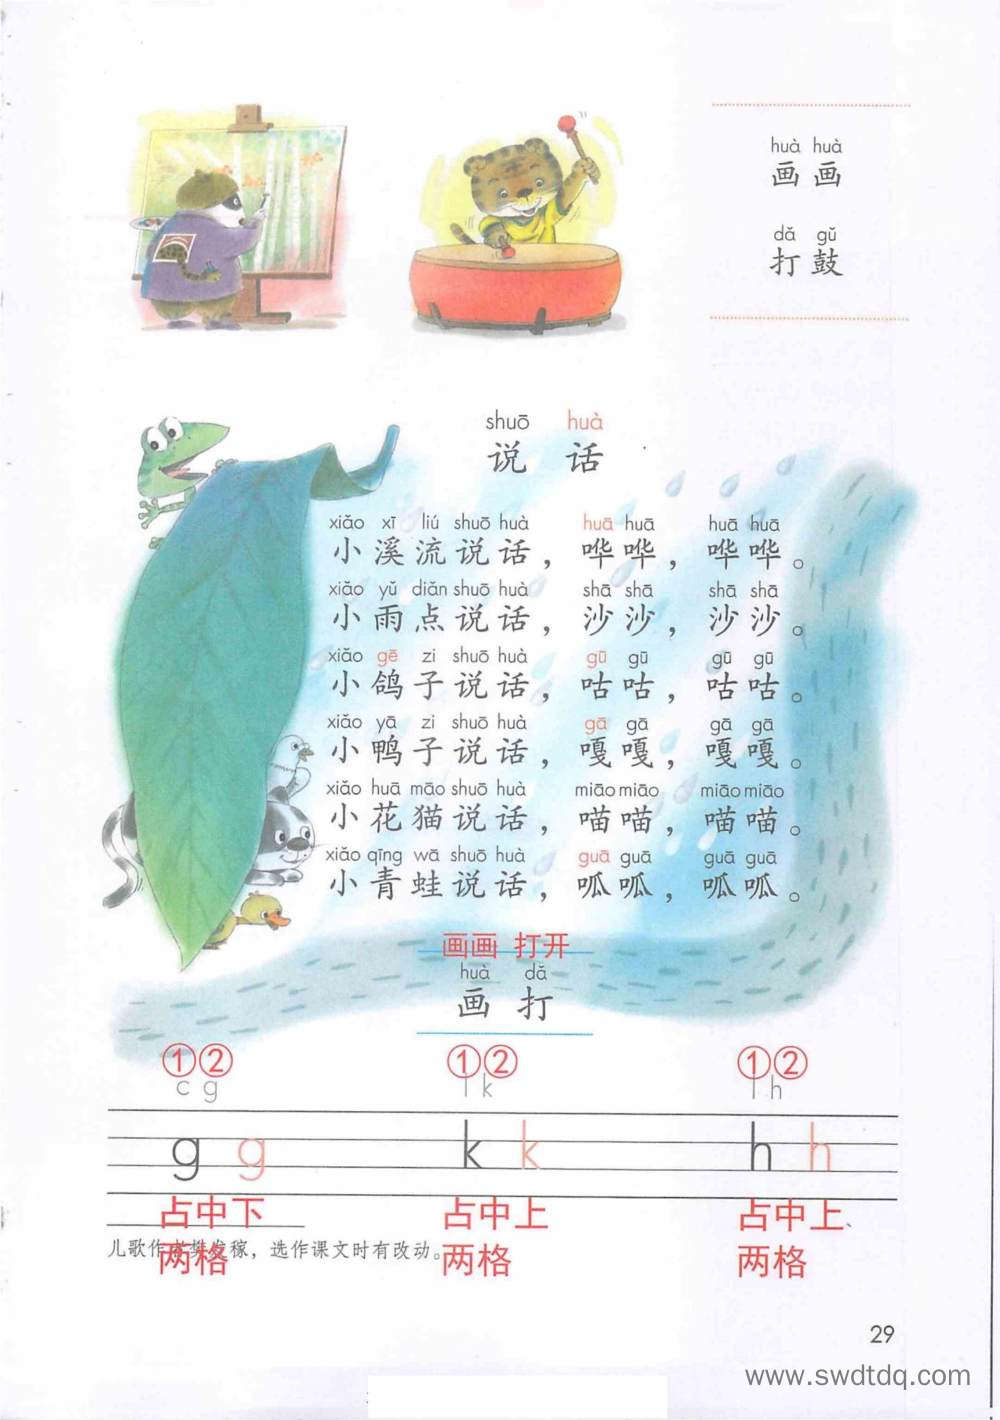 huà huà
画画
dǎ gǔ
打鼓
shuō huà
说 话
xiǎo xī liú shuō huà huā huā huā huā
小溪流说话，哗哗，哗哗。
xiǎo yǔ diǎn shuō huà shā shā shā shā
小雨点说话，沙沙，沙沙。
xiǎo gē zi shuō huà gū gū gū gū
小鸽子说话，咕咕，咕咕。
xiǎo yā zi shuō huà gā gā gā gā
小鸭子说话，嘎嘎，嘎嘎。
xiǎo huā māo shuō huà miāo miāo miāo miāo
小花猫说话，喵喵，喵喵。
xiǎo qīng wā shuō huà guā guā guā guā
小青蛙说话，呱呱，呱呱。
画画 打开
huà dǎ
画 打
①② ①② ①②
c g l k l h
g g k k h h
占中下 占中上 占中上、
两格 两格 两格
儿歌作者樊发稼，选作课文时有改动。
29
www.swdtdq.com